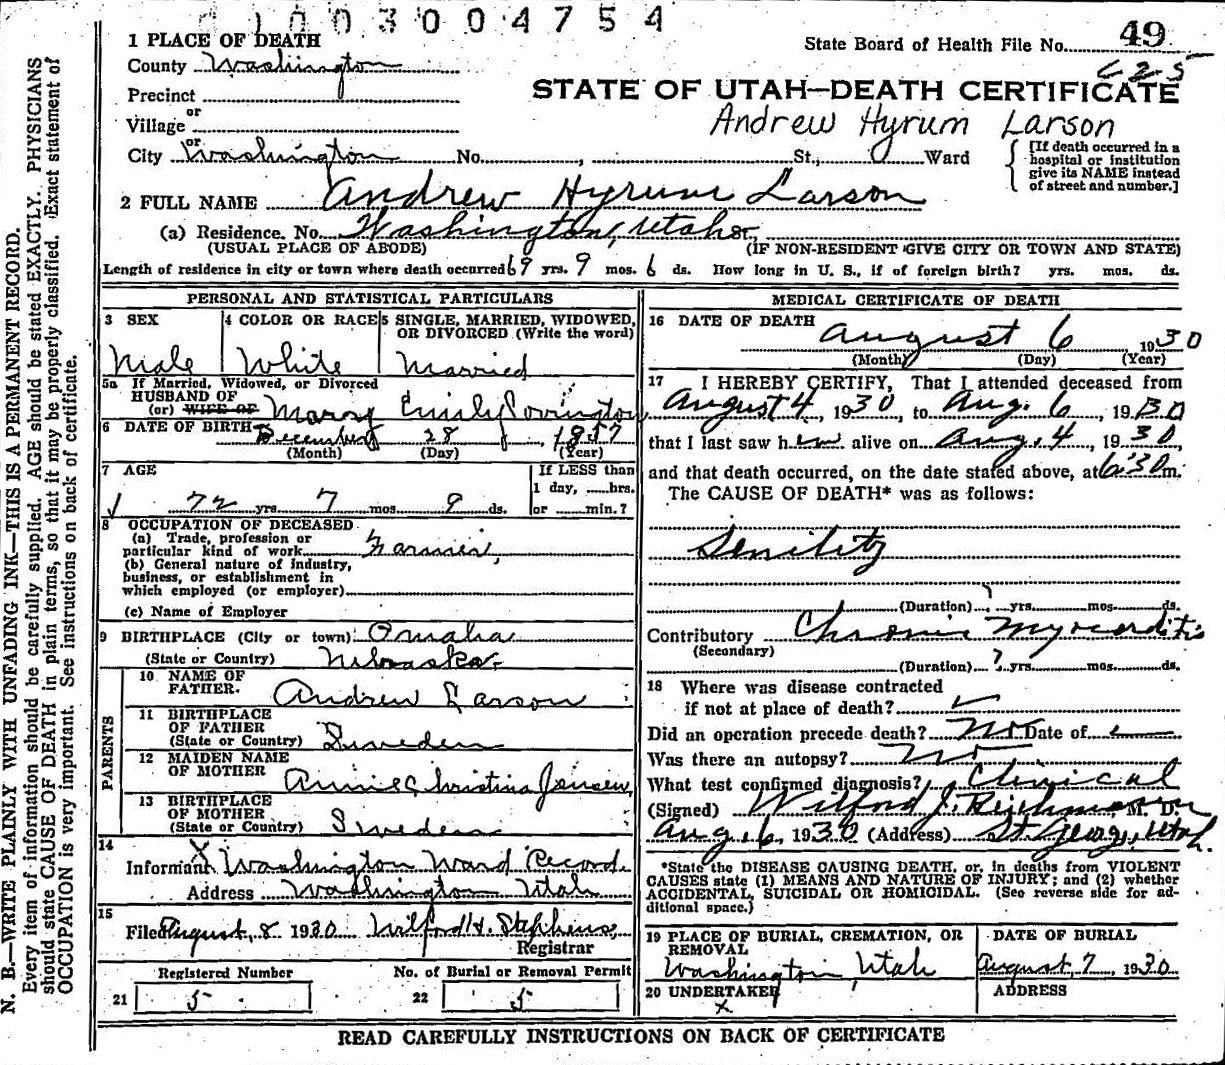 1003004754
1 PLACE OF DEATH
State Board of Health File No. 49
County Washington
C25
Precinct
STATE OF UTAH—DEATH CERTIFICATE
or
Village
Andrew Hyrum Larson
or
City Washington No. , St., Ward
[If death occurred in a hospital or institution give its NAME instead of street and number.]
2 FULL NAME Andrew Hyrum Larson
(a) Residence. No. Washington, Utah St.
(USUAL PLACE OF ABODE) (IF NON-RESIDENT GIVE CITY OR TOWN AND STATE)
Length of residence in city or town where death occurred 69 yrs. 9 mos. 6 ds. How long in U. S., if of foreign birth? yrs. mos. ds.
PERSONAL AND STATISTICAL PARTICULARS
3 SEX
Male
4 COLOR OR RACE
White
5 SINGLE, MARRIED, WIDOWED, OR DIVORCED (Write the word)
Married
5a If Married, Widowed, or Divorced
HUSBAND OF
(or) WIFE OF Mary Emily Covington
6 DATE OF BIRTH December 28, 1857
(Month) (Day) (Year)
7 AGE
72 yrs. 7 mos. 9 ds.
If LESS than
1 day, hrs.
or min.?
8 OCCUPATION OF DECEASED
(a) Trade, profession or
particular kind of work Farmer
(b) General nature of industry,
business, or establishment in
which employed (or employer)
(c) Name of Employer
9 BIRTHPLACE (City or town) Omaha
(State or Country) Nebraska
PARENTS
10 NAME OF
FATHER. Andrew Larson
11 BIRTHPLACE
OF FATHER
(State or Country) Sweden
12 MAIDEN NAME
OF MOTHER Annie Christina Jensen
13 BIRTHPLACE
OF MOTHER
(State or Country) Sweden
14
Informant Washington Ward Record.
Address Washington Utah
15
Filed August, 8 1930 Wilford H. Stephens,
Registrar
Registered Number No. of Burial or Removal Permit
21 5 22 5
MEDICAL CERTIFICATE OF DEATH
16 DATE OF DEATH
August 6 1930
(Month) (Day) (Year)
17 I HEREBY CERTIFY, That I attended deceased from
August 4, 1930, to Aug. 6, 1930
that I last saw him alive on Aug. 4, 1930,
and that death occurred, on the date stated above, at 6:30 m.
The CAUSE OF DEATH* was as follows:
Senility
(Duration) ? yrs. mos. ds.
Contributory Chronic Myocarditis
(Secondary)
(Duration) ? yrs. mos. ds.
18 Where was disease contracted
if not at place of death?
Did an operation precede death? No Date of
Was there an autopsy? No
What test confirmed diagnosis? Clinical
(Signed) Wilford J. Reichmann, M. D.
Aug. 6, 1930 (Address) St. George, Utah.
*State the DISEASE CAUSING DEATH, or, in deaths from VIOLENT
CAUSES state (1) MEANS AND NATURE OF INJURY; and (2) whether
ACCIDENTAL, SUICIDAL OR HOMICIDAL. (See reverse side for ad-
ditional space.)
19 PLACE OF BURIAL, CREMATION, OR
REMOVAL
Washington, Utah
DATE OF BURIAL
August, 7, 1930
20 UNDERTAKER
x
ADDRESS
READ CAREFULLY INSTRUCTIONS ON BACK OF CERTIFICATE
N. B.—WRITE PLAINLY WITH UNFADING INK—THIS IS A PERMANENT RECORD.
Every item of information should be carefully supplied. AGE should be stated EXACTLY. PHYSICIANS
should state CAUSE OF DEATH in plain terms, so that it may be properly classified. Exact statement of
OCCUPATION is very important. See instructions on back of certificate.